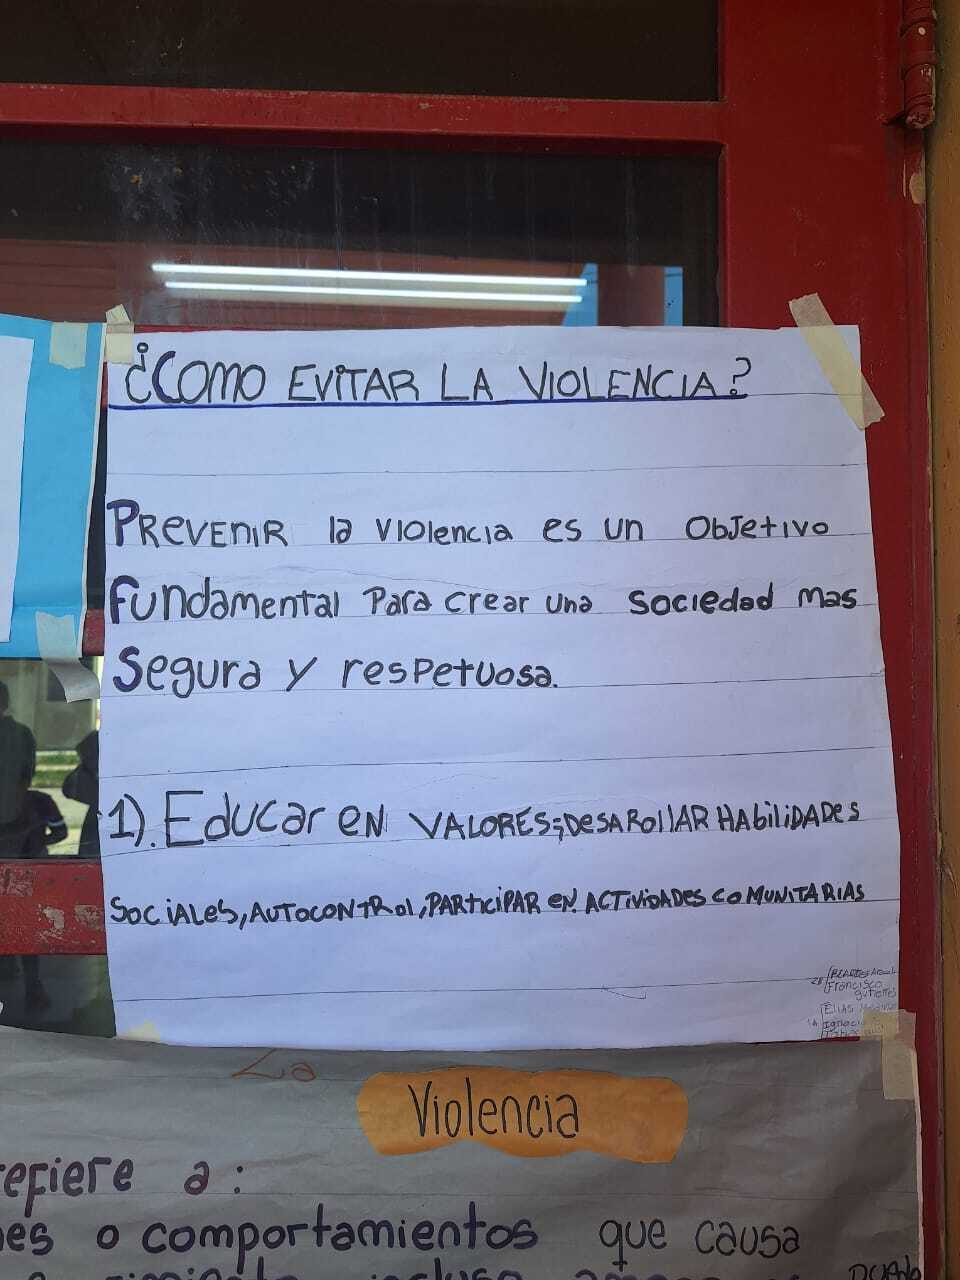 ¿COMO EVITAR LA VIOLENCIA?
PREVENIR la VIOlencia es un OBJetivo
fundamental Para crear una sociedad mas
Segura y respetuosa.
1). Educar en VALORES; DESARollAR HAbiliDADes
SOCIALES, AUTOCONTROl, PARTICIPAR EN ACTIVIDADES COMUNITARIAS
Francisco
Gutierrez
ELIAS
La
Violencia
refiere a:
o comportamientos que causa
incluso